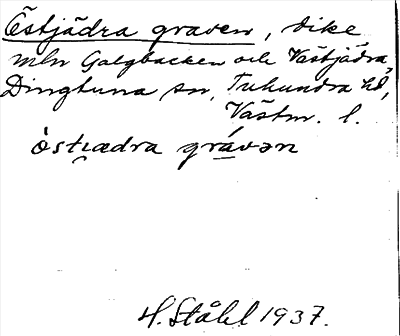 Östjädra graven, dike
mln Galgbacken och Västjädra,
Dingtuna sn, Tuhundra hd,
Västm. l.
östıædra grávən
H. Ståhl 1937.